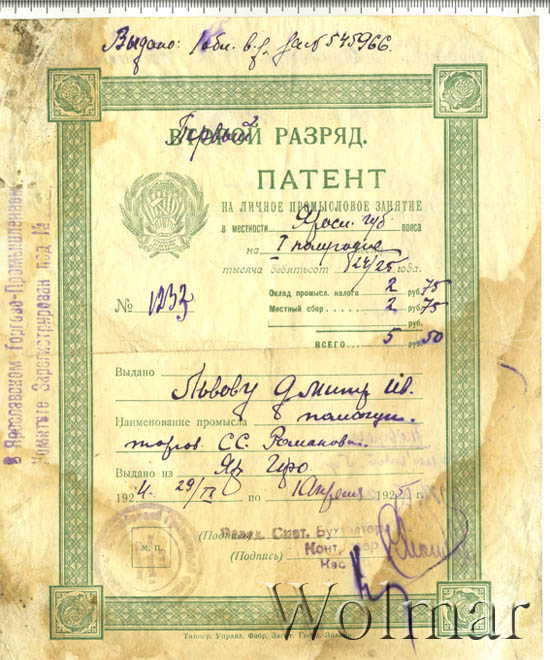 Выдано: 1 обл. в.р. за № 545966.
ВТОРОЙ РАЗРЯД.
Первый
ПАТЕНТ
НА ЛИЧНОЕ ПРОМЫСЛОВОЕ ЗАНЯТИЕ
в местности Яросл. губ. пояса
на I полугодие
тысяча девятьсот 24/25 года.
Оклад промысл. налога 2 руб. 75
Местный сбор 2 руб. 75
руб.
№ 1233
ВСЕГО 5 руб. 50
Выдано Львову Дмитр Ив.
Наименование промысла
торгов. С.С. Романова
Выдано из Яр
192 4 29/IX по 1 апреля 192 5 г.
(Подпись) Бухгалтера
Конт
(Подпись)
Кас
М. П.
В Ярославском Торгово-Промышленном
Комитете Зарегистрирован под №
Типогр. Управл. Фабр. Загот. Госуд. Знаков.
Wolmar